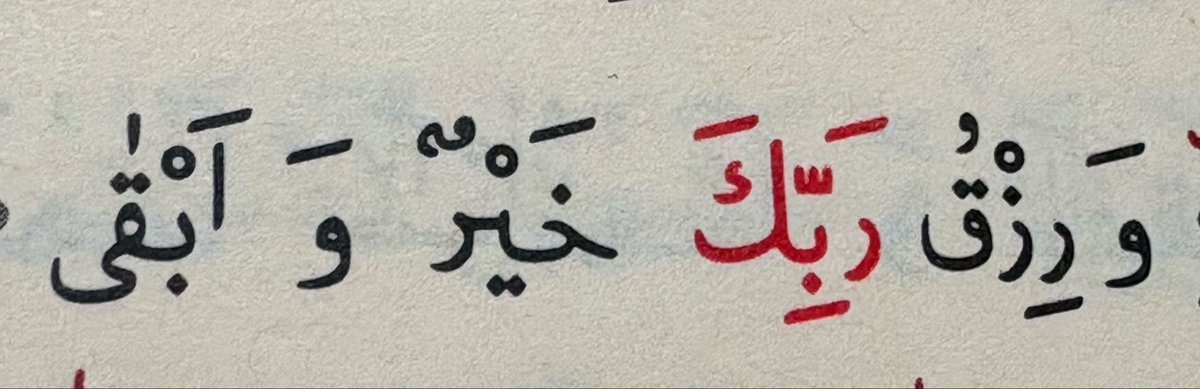 وَ رِزْقُ رَبِّكَ خَيْرٌ وَ اَبْقٰى